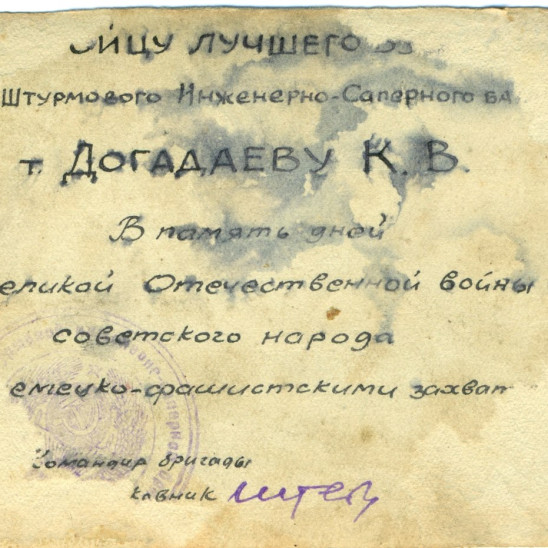 ОЙЦУ ЛУЧШЕГО ВЗ
Штурмового Инженерно-Саперного ба
т. Догадаеву К. В.
В память дней
еликой Отечественной войны
советского народа
емецко-фашистскими захват
Командир бригады
ковник